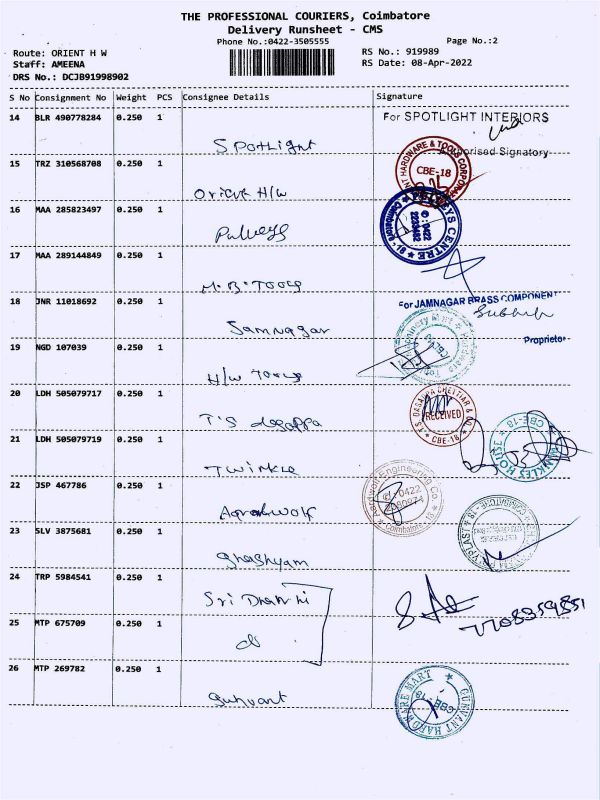 THE PROFESSIONAL COURIERS, Coimbatore
Delivery Runsheet - CMS
Phone No.:0422-3505555
Page No.:2
Route: ORIENT H W
RS No.: 919989
Staff: AMEENA
RS Date: 08-Apr-2022
DRS No.: DCJB91998902
S No Consignment No Weight PCS Consignee Details Signature
14 BLR 490778284 0.250 1
For SPOTLIGHT INTERIORS
Spotlight
Authorised Signatory
15 TRZ 310568708 0.250 1
HARDWARE & TOOLS
CBE-18
Orient H/W
16 MAA 285823497 0.250 1
CENTRE
✆: 0422
Coimbatore - 18
17 MAA 289144849 0.250 1
M.B. Tools
18 JNR 11018692 0.250 1
For JAMNAGAR BRASS COMPONENT
Samnagar
Proprieto
19 NGD 107039 0.250 1
H/W Tools
20 LDH 505079717 0.250 1
T.S. DASAPPA CHETTIAR & CO
RECEIVED
CBE-18
T.S
21 LDH 505079719 0.250 1
CBE-18
Twinkle
22 JSP 467786 0.250 1
Aardwolf Engineering Co
✆: 0422
Coimbatore
23 SLV 3875681 0.250 1
Ghashyam
24 TRP 5984541 0.250 1
Sri
25 MTP 675709 0.250 1
26 MTP 269782 0.250 1
GUNVANT HARDWARE MART
CBE-18
Gunvant